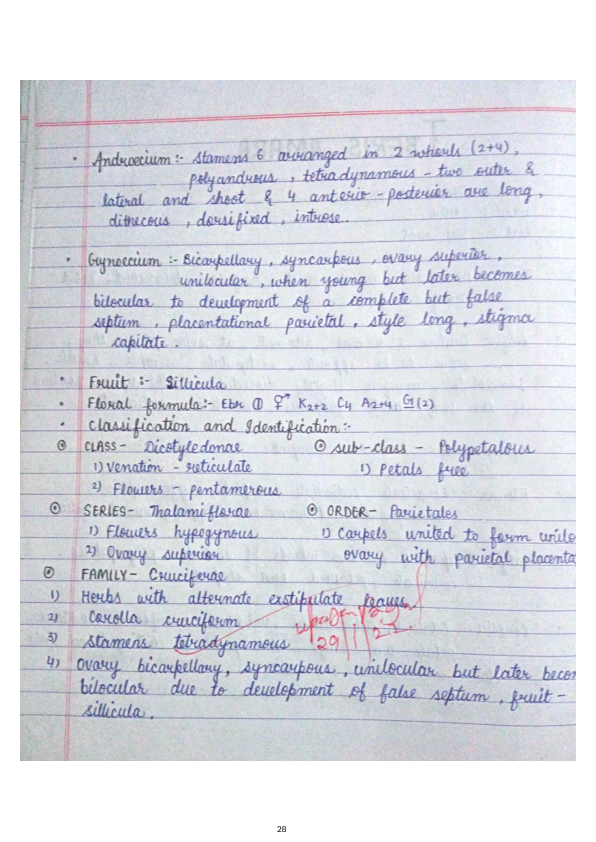 • Androecium :- Stamens 6 arranged in 2 whorls (2+4),
polyandrous, tetradynamous - two outer &
lateral and shoot & 4 anterio-posterior are long,
dithecous, dorsifixed, introse.
• Gynoecium :- Bicarpellary, syncarpous, ovary superior,
unilocular, when young but later becomes
bilocular to development of a complete but false
septum, placentational parietal, style long, stigma
capitate.
• Fruit :- Sillicula
• Floral formula:- Ebr ⦶ ⚥ K2+2 C4 A2+4 G(2)
• Classification and Identification:-
⊙ CLASS- Dicotyledonae ⊙ sub-class - Polypetalous
1) Venation - reticulate 1) Petals free
2) Flowers - pentamerous
⊙ SERIES- Thalamiflorae ⊙ ORDER- Parietales
1) Flowers hypogynous 1) Carpels united to form unilo
2) Ovary superior ovary with parietal placenta
⊙ FAMILY- Cruciferae
1) Herbs with alternate exstipulate leaves.
2) Corolla cruciform
3) Stamens tetradynamous 29/1/22
4) Ovary bicarpellary, syncarpous, unilocular but later becom
bilocular due to development of false septum, fruit -
sillicula.
28